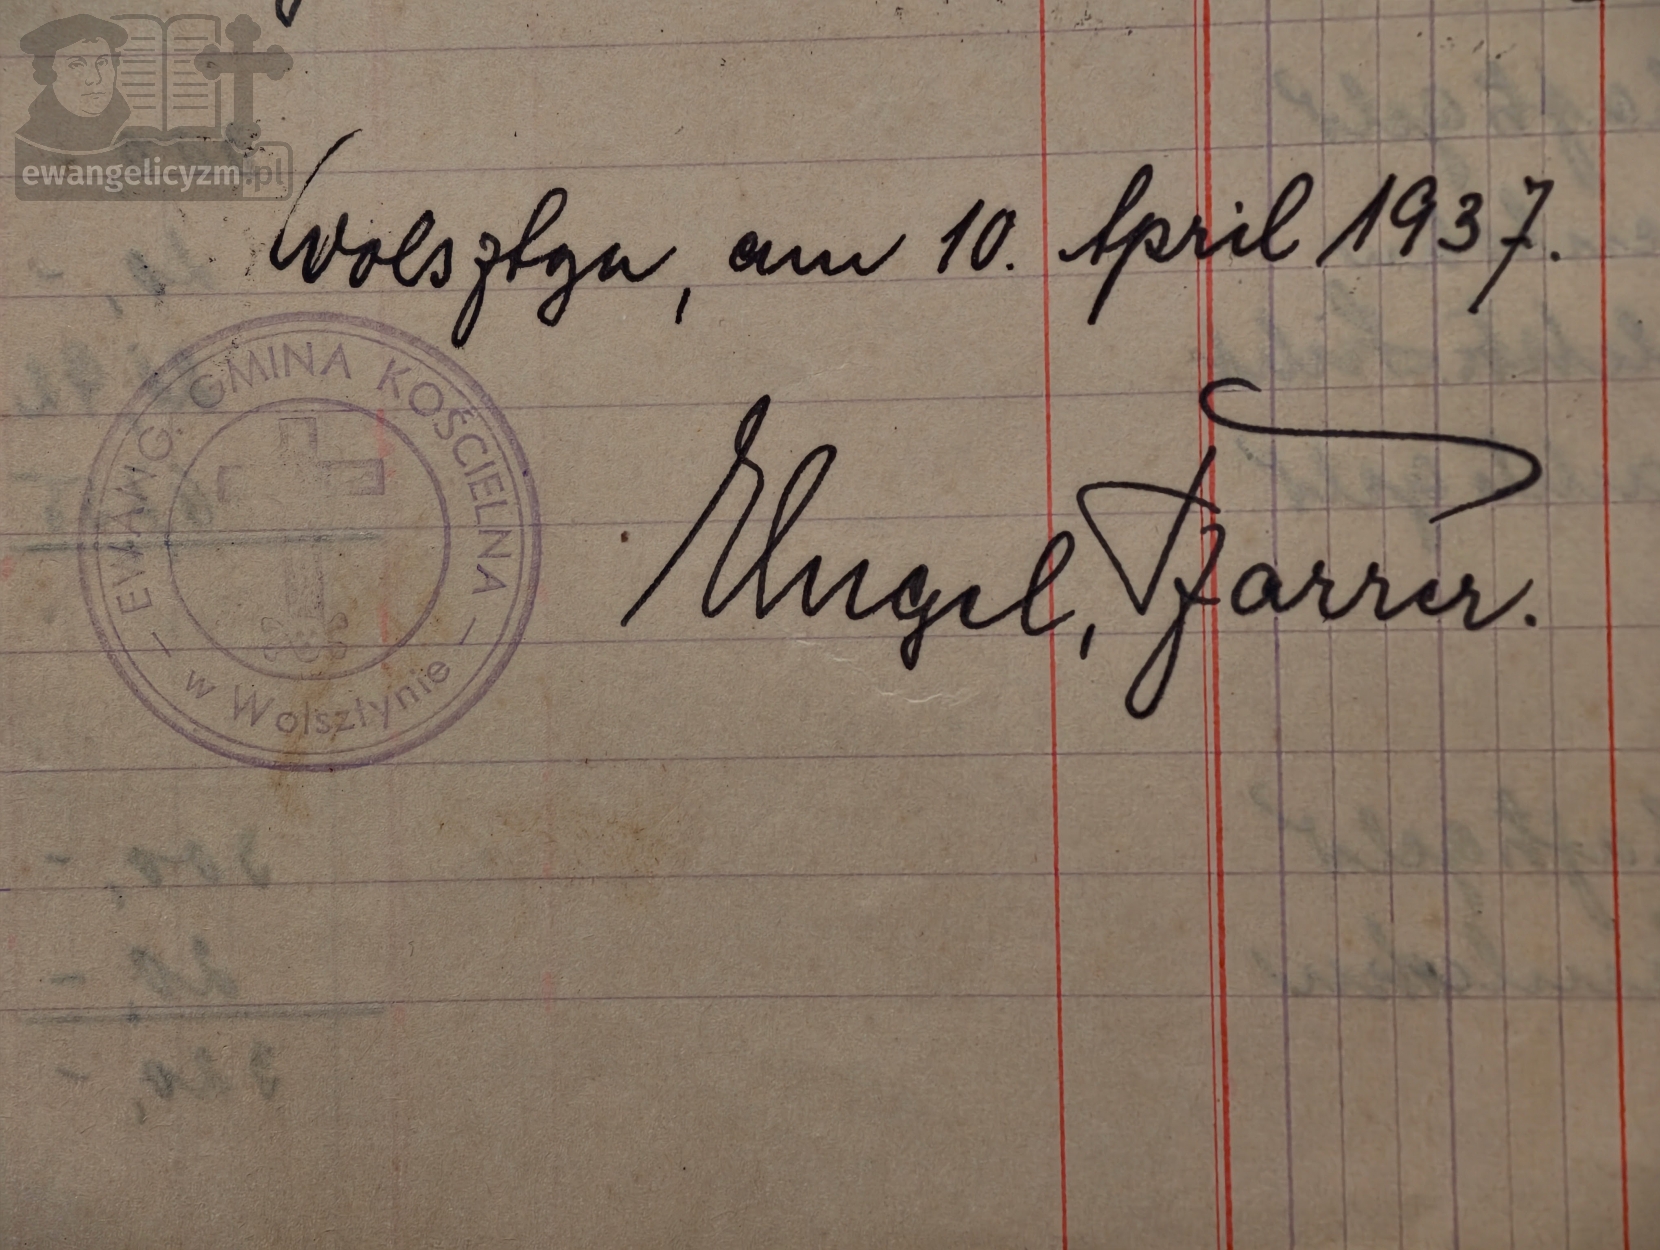 ewangelicyzm.pl
Wolsztyn, am 10. April 1937.
EWANG. GMINA KOŚCIELNA
w Wolsztynie
Engel, Pfarrer.
300,-
20,-
320,-